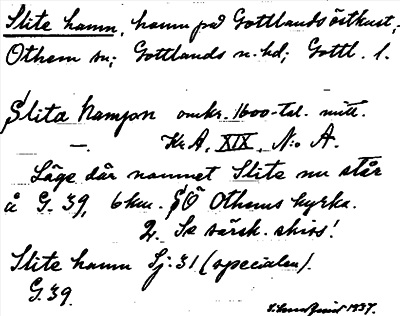 Slite hamn, hamn på Gottlands östkust,
Othem sn; Gottlands n. hd; Gottl. l.
Slita Hampn omkr. 1600-tal. mitt.
—. Kr.A. XIX, N:o A.
Läge där namnet Slite nu står
å G. 39, 6 km. SÖ Othems kyrka.
2. Se särsk. skiss!
Slite hamn Sj: 31 (specialen).
G. 39.
1937.